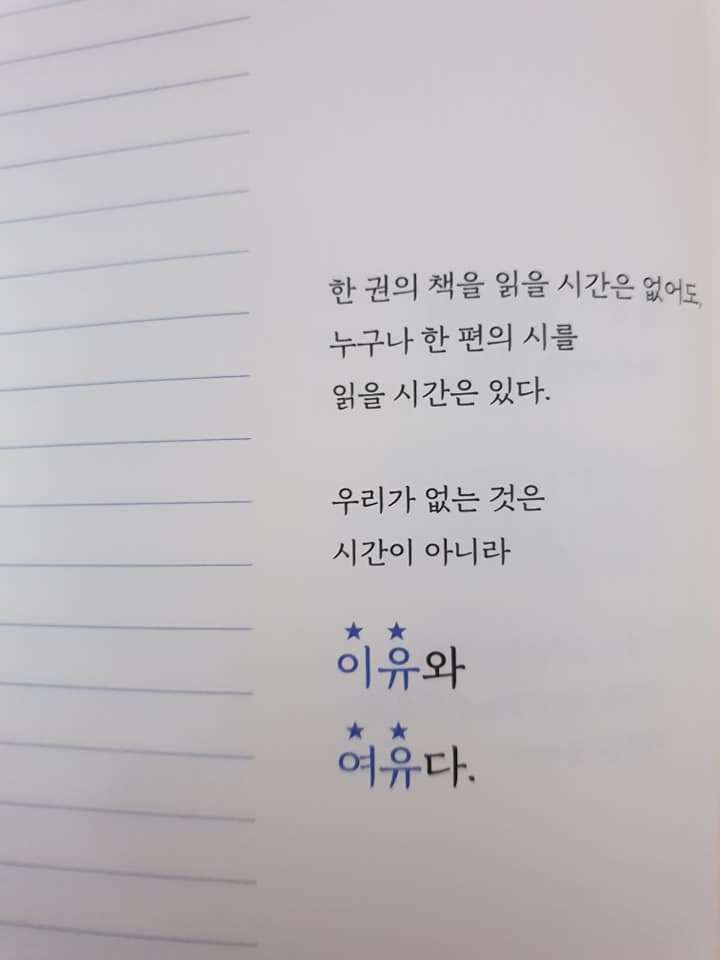 한 권의 책을 읽을 시간은 없어도,
누구나 한 편의 시를
읽을 시간은 있다.
우리가 없는 것은
시간이 아니라
이유와
여유다.